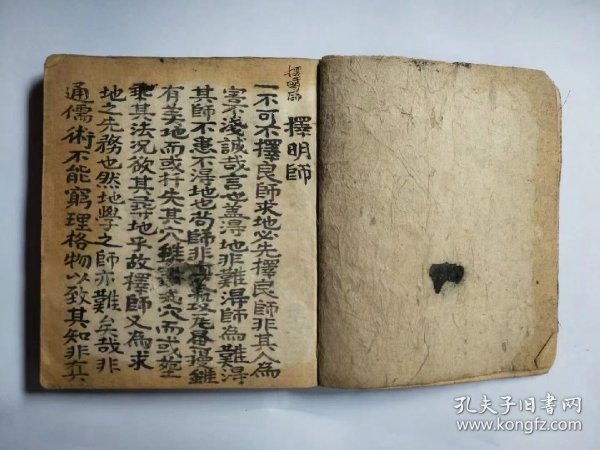 擇明師
擇明師
一不可不擇良師求地必先擇良師非其人為
害不淺誠哉言也盖淂地非難淂師為難淂
其師不患不淂地也苟師非真雖
有美地而或扦失其穴雖穴而或
乖其法况欲其尋地乎故擇師又為求
地之先務也然地學之師亦難矣哉非
通儒術不能窮理格物以致其知非真
孔夫子旧书网
www.kongfz.com